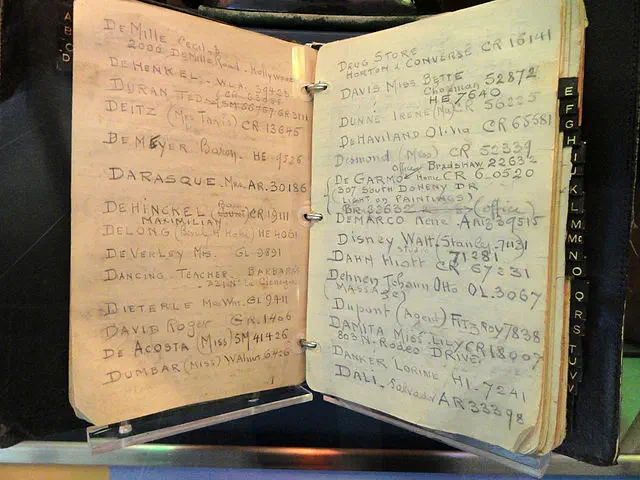 A
B
C
D
DeMille Cecil B
2000 DeMille Road. Hollywood
DeHenkel. W.LA. 39423
DURAN TED
DEITZ (Mrs Tanis) CR 13645
DE MEYER Baron. HE 9526
DARASQUE. Mrs. AR. 30186
DEHINCKEL CR 19111
MAXIMILIAN
DELONG HE 4061
DE VERLEY Mrs. GL 9891
DANCING. TEACHER. BARBARA
DIETERLE Mrs Wm. GL 9411
DAVID Roger GR. 1406
DE ACOSTA (Miss) SM 41426
DUMBAR (Miss) Walnut 6426
DRUG STORE
HORTON & CONVERSE CR 15141
DAVIS Miss BETTE 52872
Chapman
HE 7640
DUNNE IRENE CR 56225
DEHAVILAND Olivia CR 65581
Desmond (Miss) CR 52339
office Bradshaw 22632
DE GARMO Home CR 6.0520
307 South DOHENY DR
(LIGHT ON PAINTINGS)
BR. 22632 (office)
DEMARCO Rene. AR. 39515
Disney Walt. Stanley. 71131
studio 71281
DAHN Hiott CR 67231
Dehnen Johann Otto OL. 3067
(MASSAGE)
Dupont (Agent) FitzRoy 7838
DAMITA Miss. LILY CR 18007
803 N. Rodeo DRIVE.
DANKER LORINE HI. 7241
DALI. Salvador AR 33398
E
F
G
H
I
K
L
M
Mc
N
O
Q.R
S
T
U
V